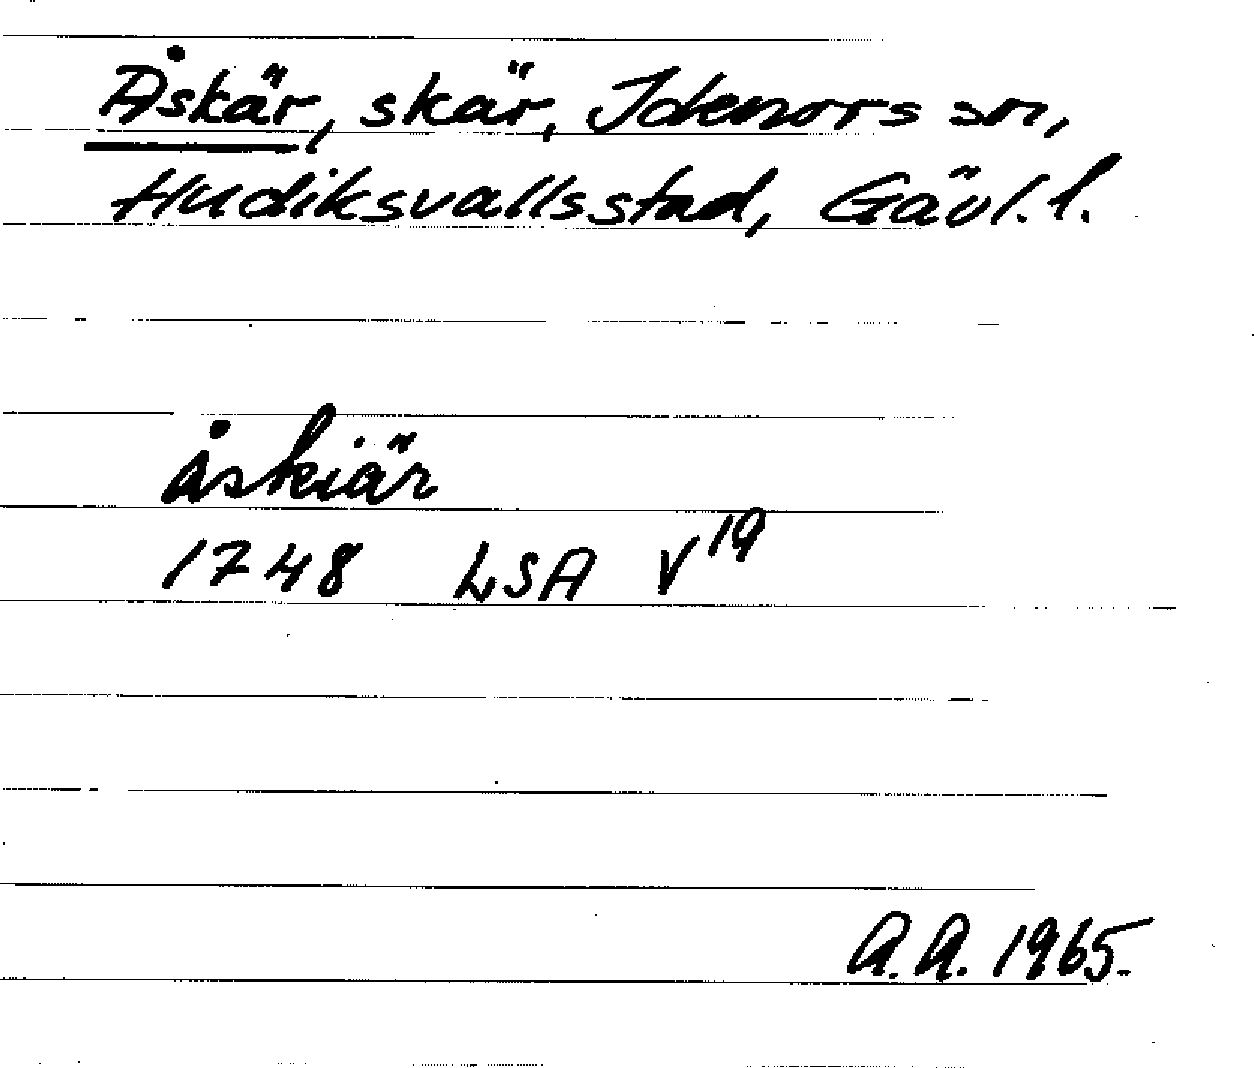 Åskär, skär, Idenors sn,
Hudiksvallsstad, Gävl. l.
åskiär
1748 LSA V¹⁹
A.A. 1965.